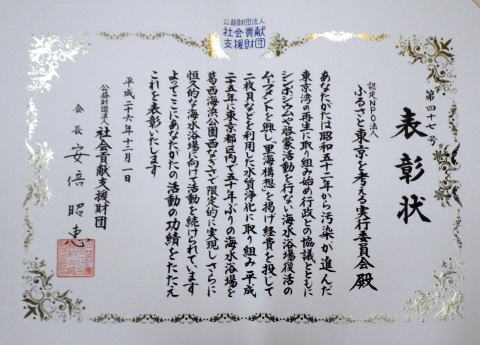 公益財団法人
社会貢献
支援財団
第四十七号
表彰状
認定NPO法人
ふるさと東京を考える実行委員会殿
あなたがたは昭和五十二年から汚染が進んだ
東京湾の再生に取り組み始め行政との協議とともに
シンポジウムで啓蒙活動を行ない海水浴場復活の
ムーブメントを興し「里海構想」を掲げ経費を投じて
二枚貝などを利用した水質浄化に取り組み平成
二十五年に東京都区内で五十年ぶりの海水浴場を
葛西海浜公園西なぎさで限定的に実現しさらに
恒久的な海水浴場に向けて活動を続けられています
よってここにあなたがたの活動の功績をたたえ
これを表彰いたします
平成二十六年十二月一日
公益財団法人 社会貢献支援財団
会長 安倍昭恵